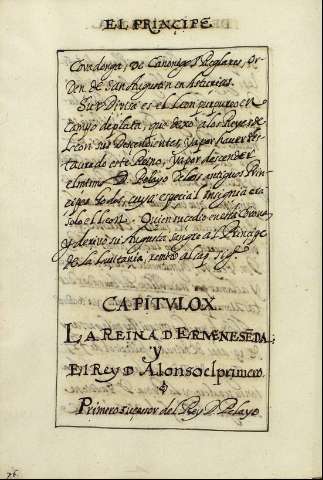 EL PRINCIPE
Covadonga, De Canonigos Reglares, Or-
den de San Augustin en Asturias.
Su Divisa es el Leon purpureo en
Campo de plata, que dexò a los Reyes de
Leon sus Descendientes, ya por haver res-
taurado este Reino, ya por descender
el mismo D. Pelayo de los antiguos Prin-
cipes Godos, cuya especial insignia era
solo el Leon. Quien sucedio en esta Corona
y derivò su Augusta sangre a V. Principe
de la Lusitania, remito al cap. sig.
CAPITULO X.
LA REINA D. ERMENESENDA;
y
El Rey D. Alonso el primero.
Primero sucessor del Rey D. Pelayo.